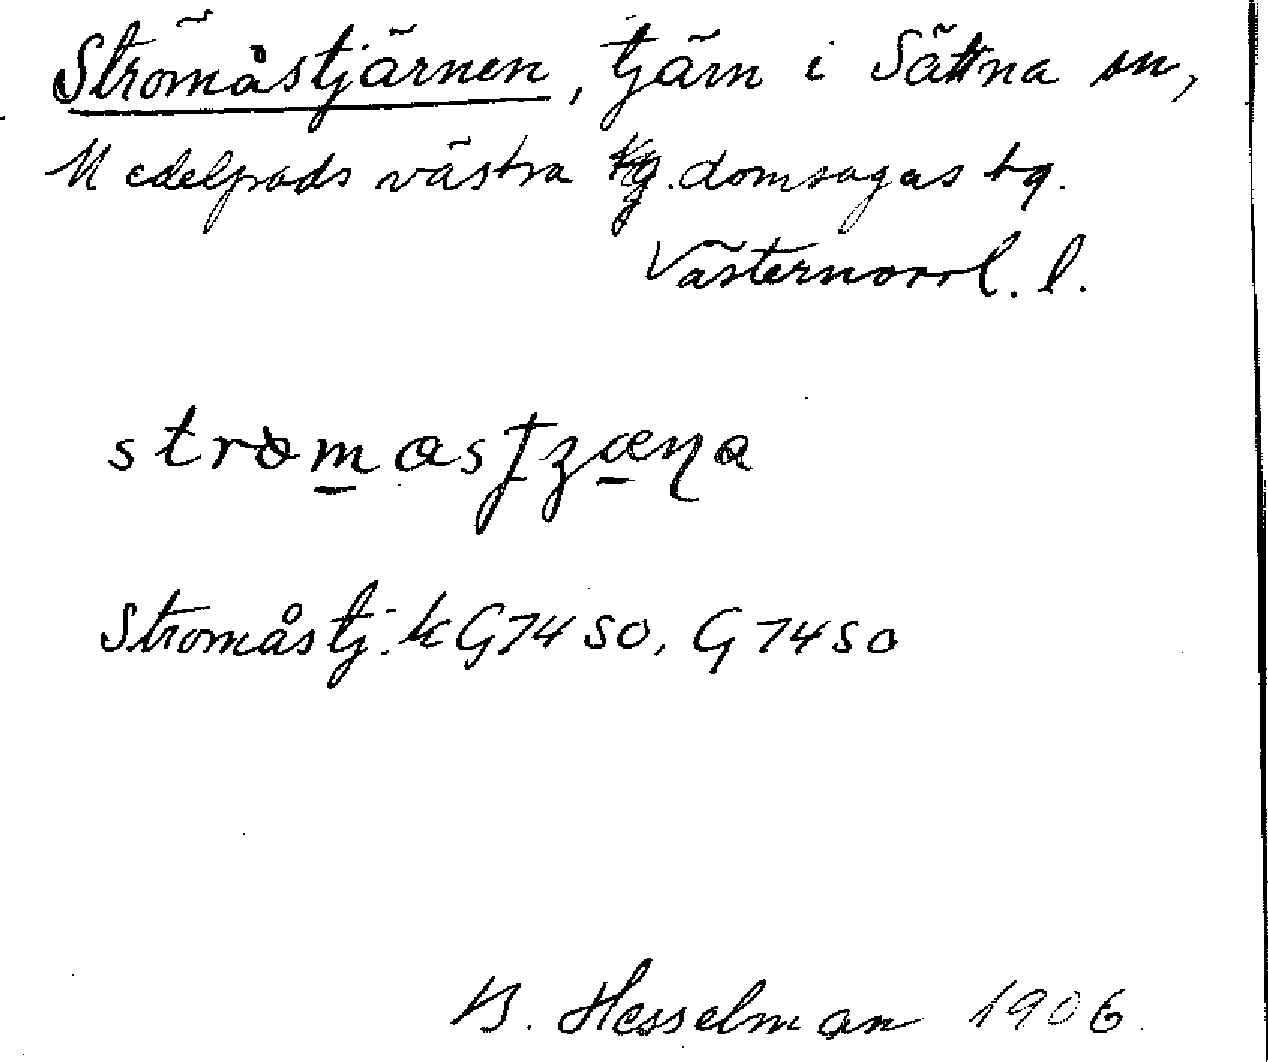 Strömåstjärnen, tjärn i Sättna sn,
Medelpads västra domsagas tg.
Västernorrl. l.
Stromåstj. kG74SO, G74SO
B. Hesselman 1906.